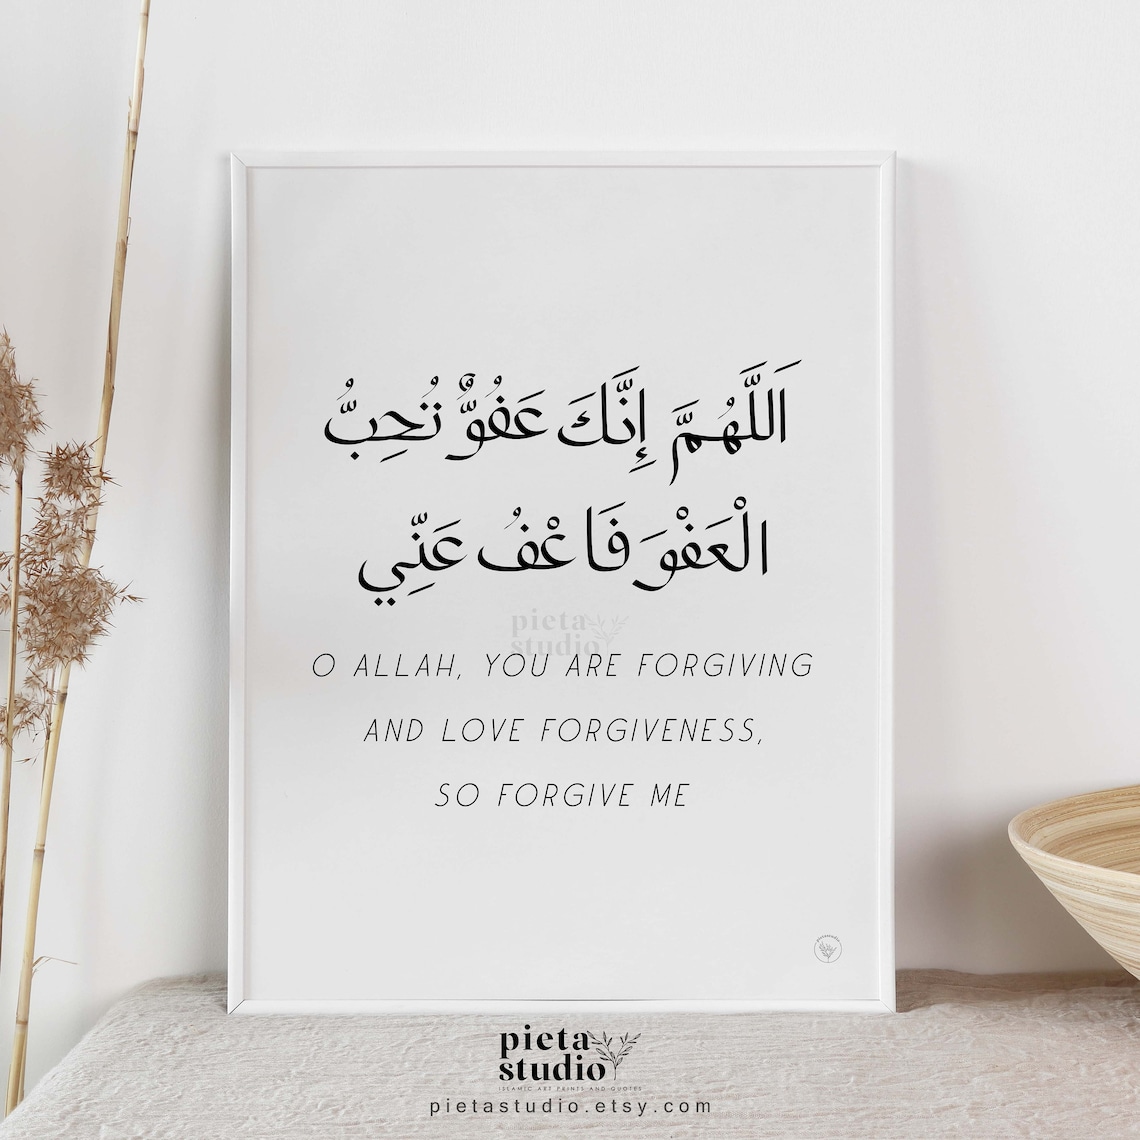 اَللَّهُمَّ إِنَّكَ عَفُوٌّ تُحِبُّ
الْعَفْوَ فَاعْفُ عَنِّي
pieta
studio
O ALLAH, YOU ARE FORGIVING
AND LOVE FORGIVENESS,
SO FORGIVE ME
pietastudio
pieta
studio
ISLAMIC ART PRINTS AND QUOTES
pietastudio.etsy.com